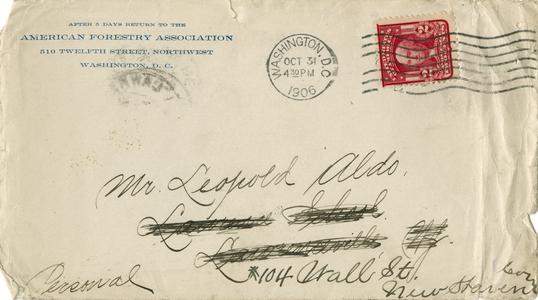 AFTER 5 DAYS RETURN TO THE
AMERICAN FORESTRY ASSOCIATION
510 TWELFTH STREET, NORTHWEST
WASHINGTON, D. C.
WASHINGTON, D.C.
OCT 31
4 30 PM
1906
2 2
Mr. Leopold Aldo,
Lawrenceville
104 Wall St.
New Haven
Personal